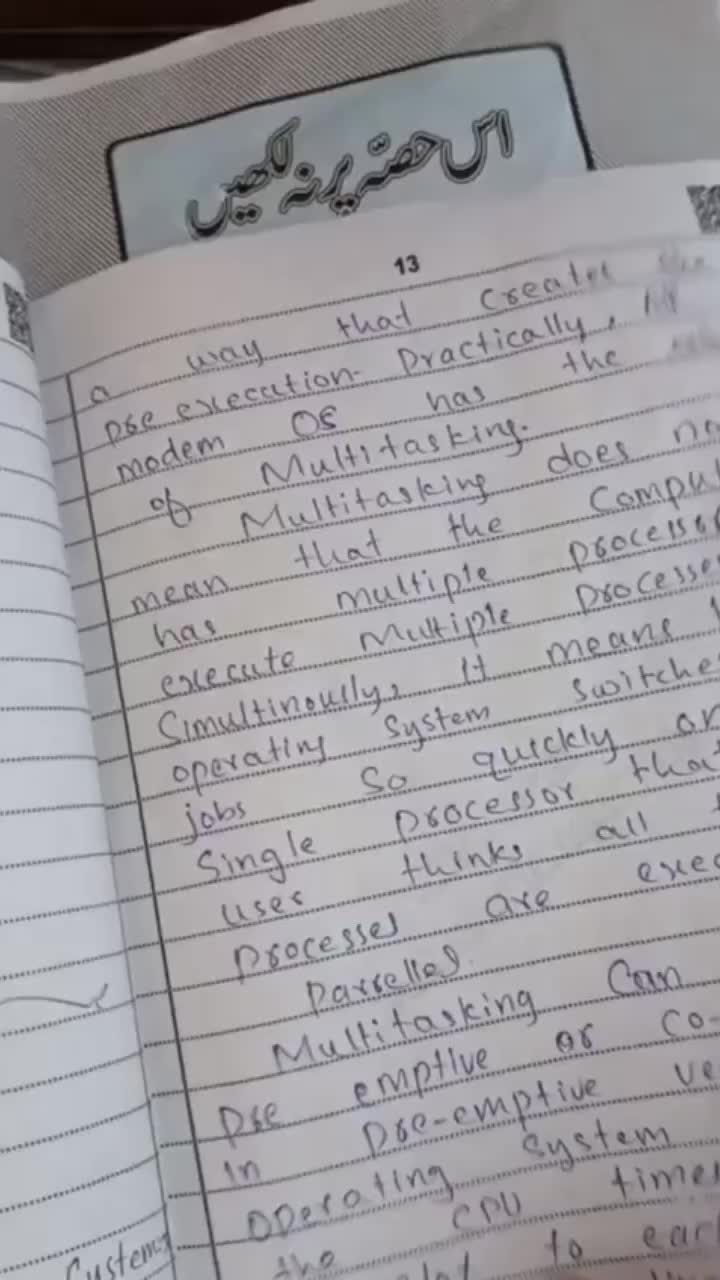 اس حصّہ پر نہ لکھیں
13
a way that creates the
pre execution. Practically, all
modem OS has the
of Multitasking.
Multitasking does no
mean that the Compu
has multiple process
execute Multiple processe
Simultinously, it means
operating System switche
jobs So quickly on
Single processor that
user thinks all
processes are exec
parrelles.
Multitasking Can
pre emptive or Co-
in pre-emptive ve
operating System
the CPU times
to each
System